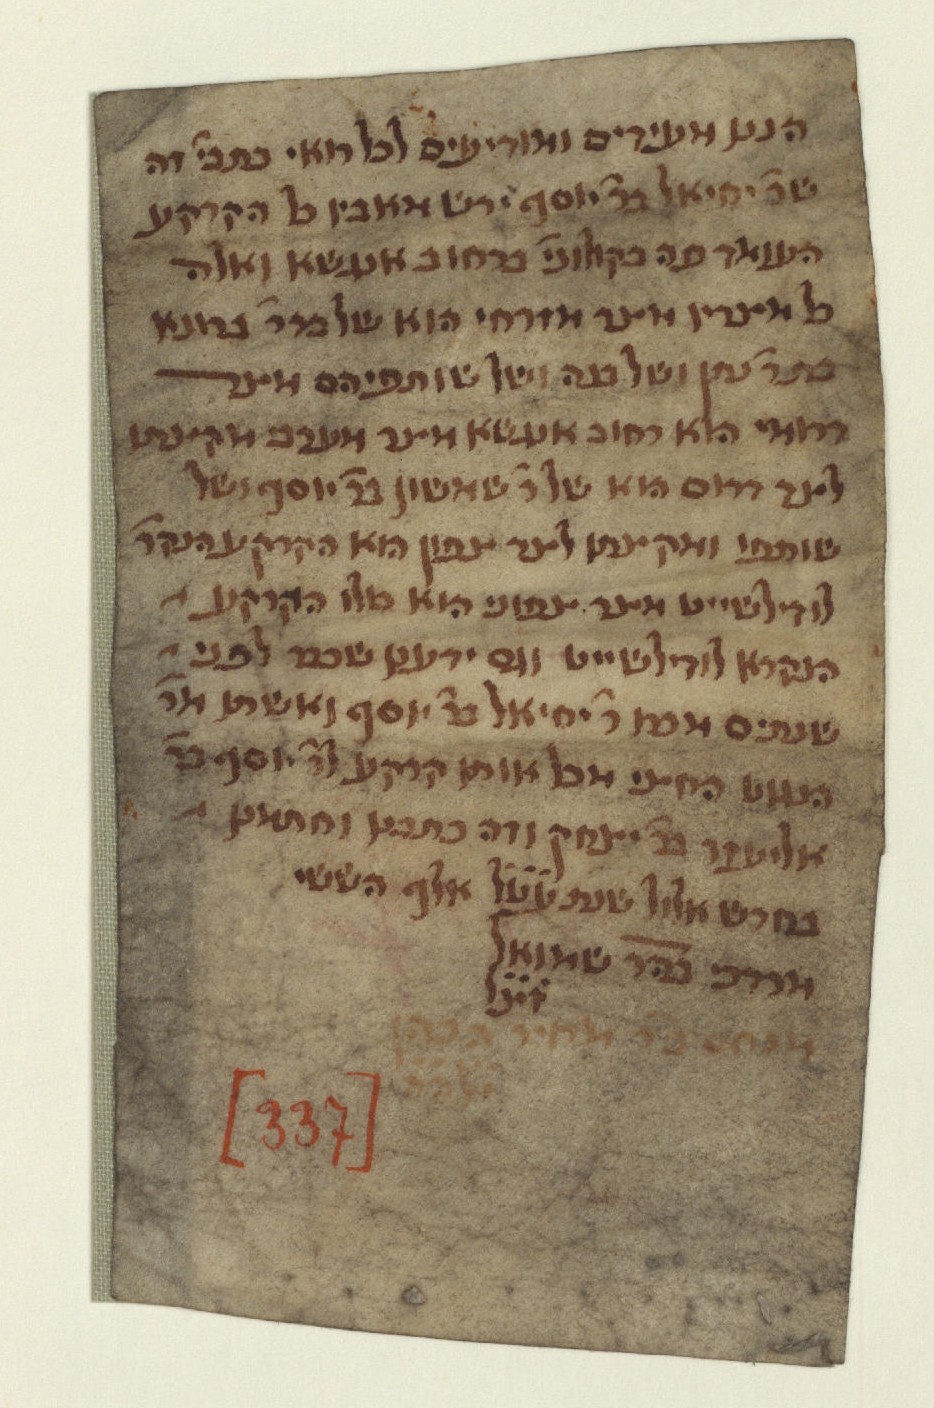 הננו מעידים ומודיעים לכל רואי כתבי׳ זה
שר׳ יחיאל בר׳ יוסף ירש מאביו כל הקרקע
העומד פה בקולוני׳ ברחוב אנגשא ואלה
כל מיצריו מיצר מזרחי הוא של מר׳ ברונא
בת ר׳ נתן ושל בנה ושל שותפיהם מיצר
דרומי הוא רחוב אנגשא מיצר מערב מקצתו
לצד דרום הוא של ר׳ שמשון בר׳ יוסף ושל
שותפו ומקצתו לצד צפון הוא הקרקע הנקר׳
לודילשייט מיצר צפוני הוא כולו הקרקע
הנקרא לודילשייט וגם ידענו שכבר לפני
שנתים מכרו ר׳ יחיאל בר׳ יוסף ואשתו מר׳
החצי מכל אותו קרקע לר׳ יוסף בר׳
אליעזר בר׳ יצחק וזה כתבנו וחתמנו
בחדש אלול שנת אלף הששי
מרדכי בהר׳ שמואל
זצ״ל
מנחם בר׳ מאיר הכהן
[337]